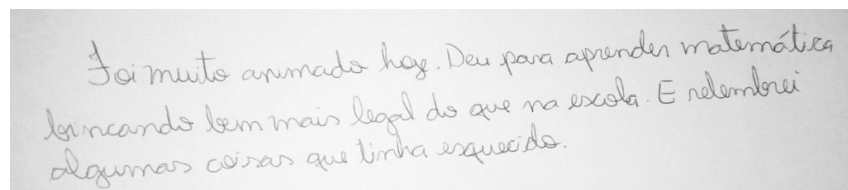 Foi muito animado hoje. Deu para aprender matemática
brincando bem mais legal do que na escola. E relembrei
algumas coisas que tinha esquecido.